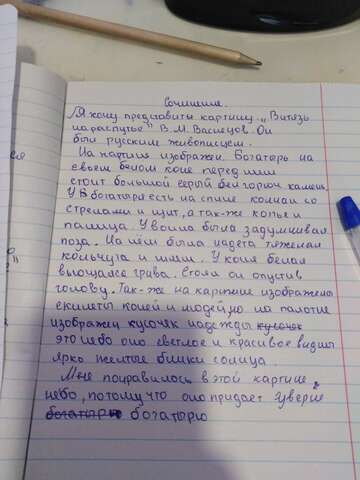 Сочинение.
Я хочу представить картину „Витязь
на распутье" В. М. Васнецов. Он
был русским живописцем.
На картине изображен. Богатырь на
своем белом коне перед ним
стоит большой серый бел горюч камень.
У богатыря есть на спине колчан со
стрелами и щит, а так-же копье и
палица. У воина была задумчивая
поза. На нём была надета тяжелая
кольчуга и шлем. У коня белая
вьющаяся грива. Стоял он опустив
голову. Так-же на картине изображены
скилеты коней и людей, но на полотне
изображён кусочек надежды кусочек
это небо оно светлое и красивое видны
ярко желтые блики солнца.
Мне понравилось в этой картине
небо, потому что оно придает
богатыр богатырю